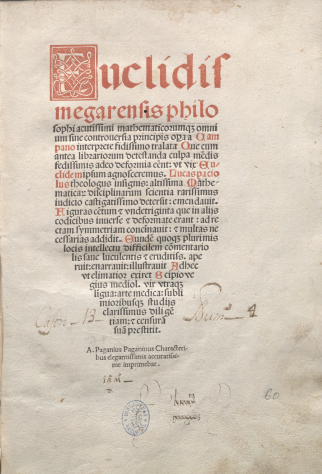 Euclidis
megarensis philo
sophi acutissimi mathematicorumq; omni
um sine controuersia principis opera a Cam
pano interprete fidissimo tralata Que cum
antea librariorum detestanda culpa mendis
fedissimis adeo deformia eent: vt vix Eu
clidem ipsum agnosceremus. Lucas pacio
lus theologus insignis: altissima Mathe
maticaꝝ disciplinarum scientia rarissimus
iudicio castigatissimo detersit: emendauit.
Figuras cētum ⁊ vndetriginta que in alijs
codicibus inuerse ⁊ deformate erant: ad re
ctam symmetriam concinauit: ⁊ multas ne
cessarias addidit. Eundē quoqꝫ plurimis
locis intellectu difficilem cōmentario
lis sane luculentis ⁊ eruditiss. ape
ruit: enarrauit: illustrauit Adhec
vt elimatior exiret Scipio ve
gius mediol. vir vtraqꝫ
lingua: arte medica: subli
mioribusqꝫ studijs
clarissimus diligē
tiam: ⁊ censurā
suā prestitit.
Cajon 13
4
A. Paganius Paganinus Characteri
bus elegantissimis accuratissi
me imprimebat.
60